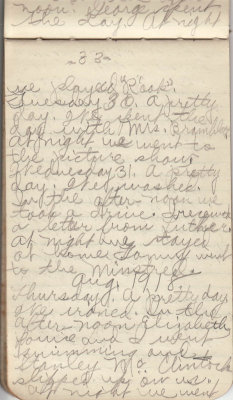 noon. George spent
the day. At night
-83-
we played "Rook".
Tuesday 30. A pretty
day. We spent the
day with Mrs.
At night we went to
the picture show.
Wednesday 31. A pretty
day. They washed.
In the after noon we
took a drive. I received
a letter from Luther.
At night we stayed
at home. went
to the Minstrel.
Aug. 1918.
Thursday 1. A pretty day.
We ironed. In the
after noon Elizabeth
Louise and I went
swimming and
Stanley McClintock
slipped up on us.
At night we went